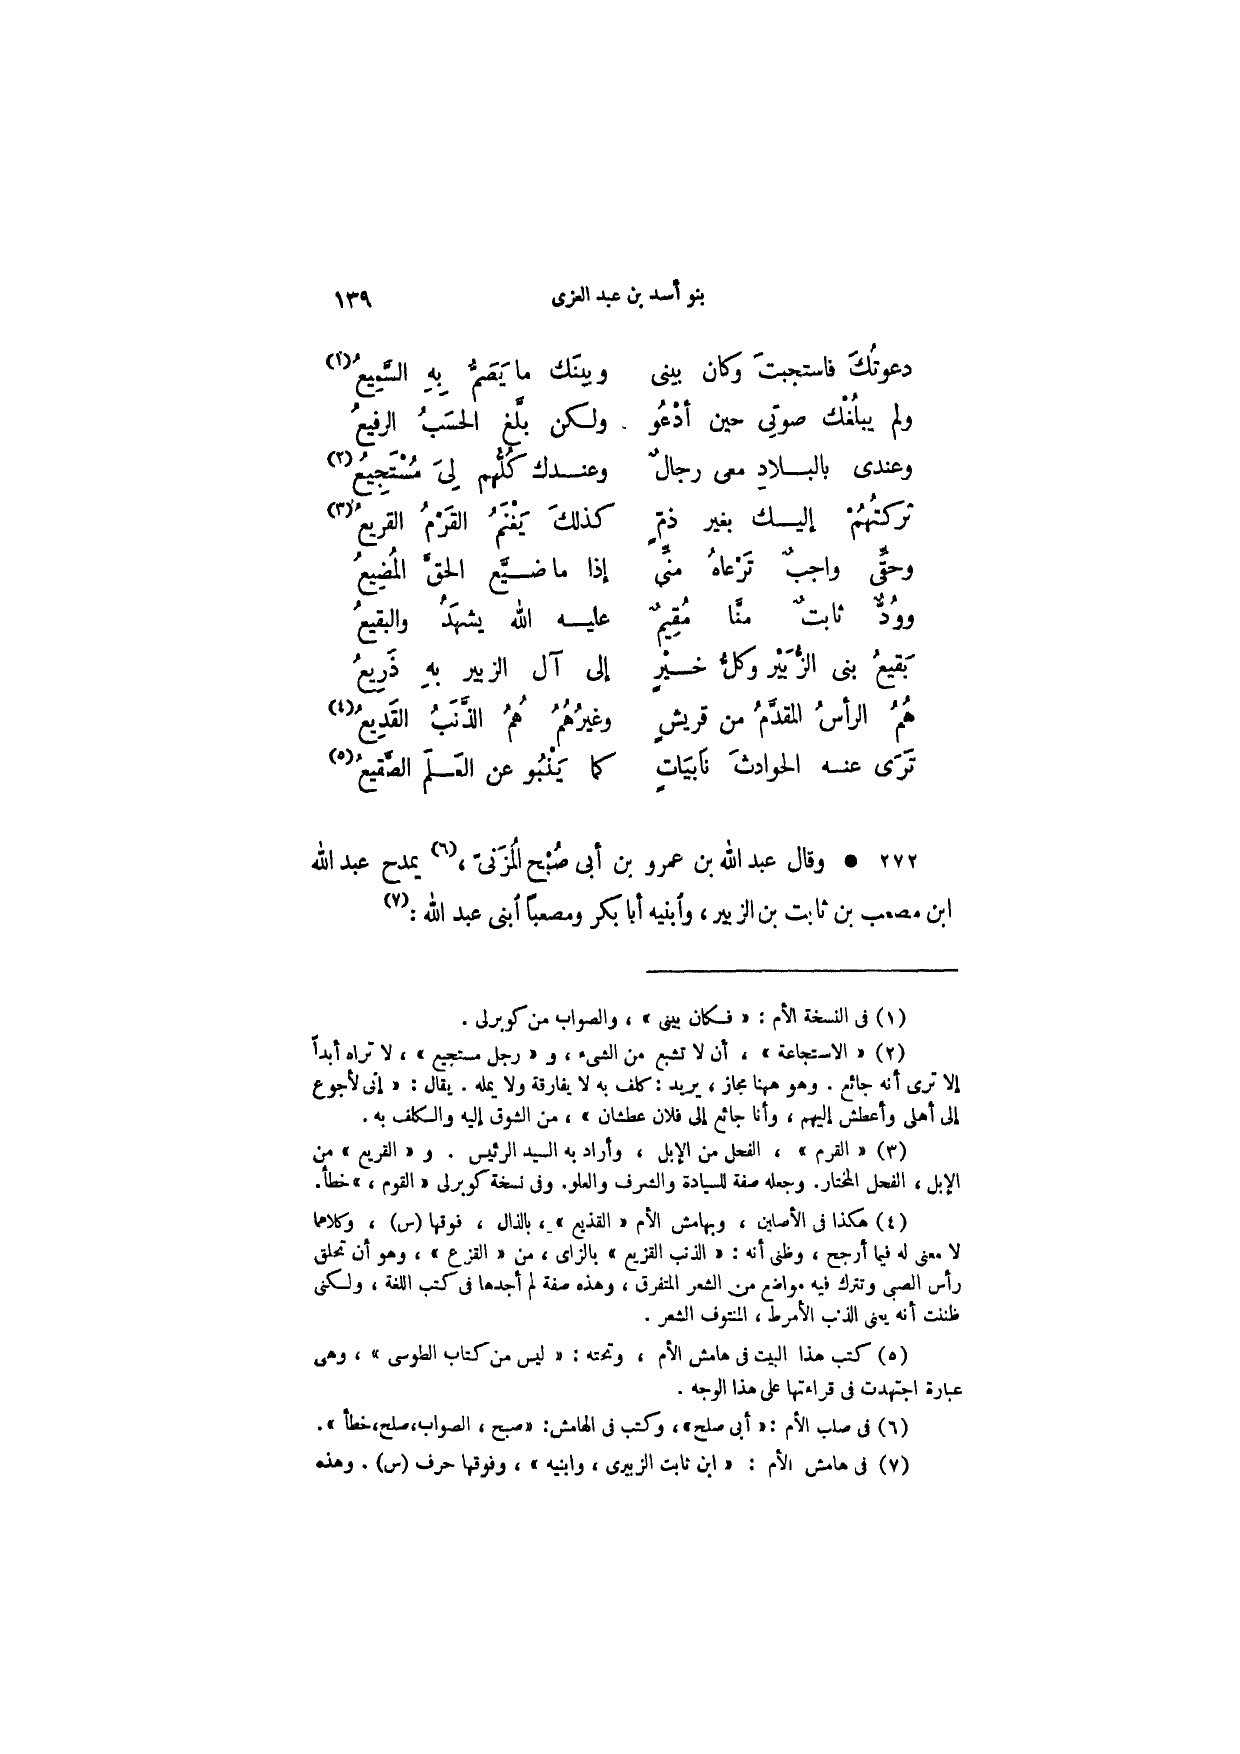 بنو أسد بن عبد العزى ١٣٩
دعوتُكَ فاستجبتَ وكان بينى وبينَك ما يَصَمُّ بِهِ السَّمِيعُ(١)
ولم يبلُغْك صوتِى حين أدْعُو ولكن بلَّغ الحسَبُ الرفيعُ
وعندى بالبــلادِ معى رجالٌ وعنــدك كُلُّهم لِىَ مُسْتَجِيعُ(٢)
تركتُهُمْ إليــك بغير ذمٍّ كذلكَ يَغْنَمُ القَرْمُ القريعُ(٣)
وحقِّى واجبٌ تَرْعاهُ منِّى إذا ما ضــيَّع الحقَّ المُضِيعُ
ووُدٌّ ثابتٌ منَّا مُقِيمٌ عليــه الله يشهَدُ والبقيعُ
بَقيعُ بنى الزُّبَيْر وكلُّ خــيْرٍ إلى آل الزبير بهِ ذَرِيعُ
هُمُ الرأسُ المقدَّمُ من قريشٍ وغيرُهُمُ هُمُ الذَّنَبُ القَدِيعُ(٤)
تَرَى عنــه الحوادثَ نَابِيَاتٍ كما يَنْبُو عن العَــلَمِ الصَّقيعُ(٥)
٢٧٢ ● وقال عبد الله بن عمرو بن أبى صُبْح المُزَنىّ ،(٦) يمدح عبد الله
ابن مصعب بن ثابت بن الزبير ، وأبنيه أبا بكر ومصعباً أبنى عبد الله :(٧)
(١) فى النسخة الأم : « فـكان بينى » ، والصواب من كوبرلى .
(٢) « الاستجاعة » ، أن لا تشبع من الشىء ، و « رجل مستجيع » ، لا تراه أبداً
إلا ترى أنه جائع . وهو ههنا مجاز ، يريد : كلف به لا يفارقة ولا يمله . يقال : « إنى لأجوع
إلى أهلى وأعطش إليهم ، وأنا جائع إلى فلان عطشان » ، من الشوق إليه والـكلف به .
(٣) « القرم » ، الفحل من الإبل ، وأراد به السيد الرئيس . و « القريع » من
الإبل ، الفحل المختار. وجعله صفة للسيادة والشرف والعلو. وفى نسخة كوبرلى « القوم ، » خطأ.
(٤) هكذا فى الأصلين ، وبهامش الأم « القذيع » ، بالذال ، فوقها (س) ، وكلاهما
لا معنى له فيما أرجح ، وظنى أنه : « الذنب القزيع » بالزاى ، من « القزع » ، وهو أن تحلق
رأس الصبى وتترك فيه مواضع من الشعر المتفرق ، وهذه صفة لم أجدها فى كتب اللغة ، ولـكنى
ظننت أنه يعنى الذنب الأمرط ، المنتوف الشعر .
(٥) كتب هذا البيت فى هامش الأم ، وتحته : « ليس من كتاب الطوسى » ، وهى
عبارة اجتهدت فى قراءتها على هذا الوجه .
(٦) فى صلب الأم : « أبى صلح» ، وكتب فى الهامش: «صبح ، الصواب،صلح،خطأ ».
(٧) فى هامش الأم : « ابن ثابت الزبيرى ، وابنيه » ، وفوقها حرف (س) . وهذه